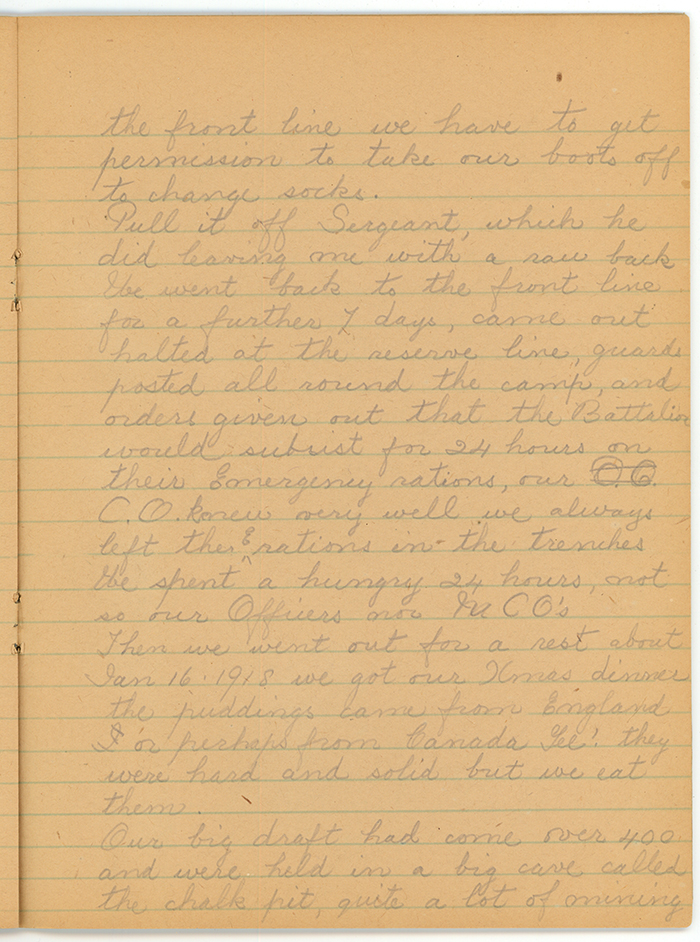 the front line we have to get
permission to take our boots off
to change socks.
Pull it off Sergeant, which he
did leaving me with a raw back
We went back to the front line
for a further 7 days, came out
halted at the reserve line, guards
posted all round the camp, and
orders given out that the Battalion
would subsist for 24 hours on
their Emergency rations, our O.C.
C.O. knew very well we always
left the E rations in the trenches
We spent a hungry 24 hours, not
so our Officers nor N C O's
Then we went out for a rest about
Jan 16. 1918 we got our Xmas dinner
the puddings came from England
or perhaps from Canada Gee! they
were hard and solid but we eat
them.
Our big draft had come over 400
and were held in a big cave called
the chalk pit, quite a lot of mining